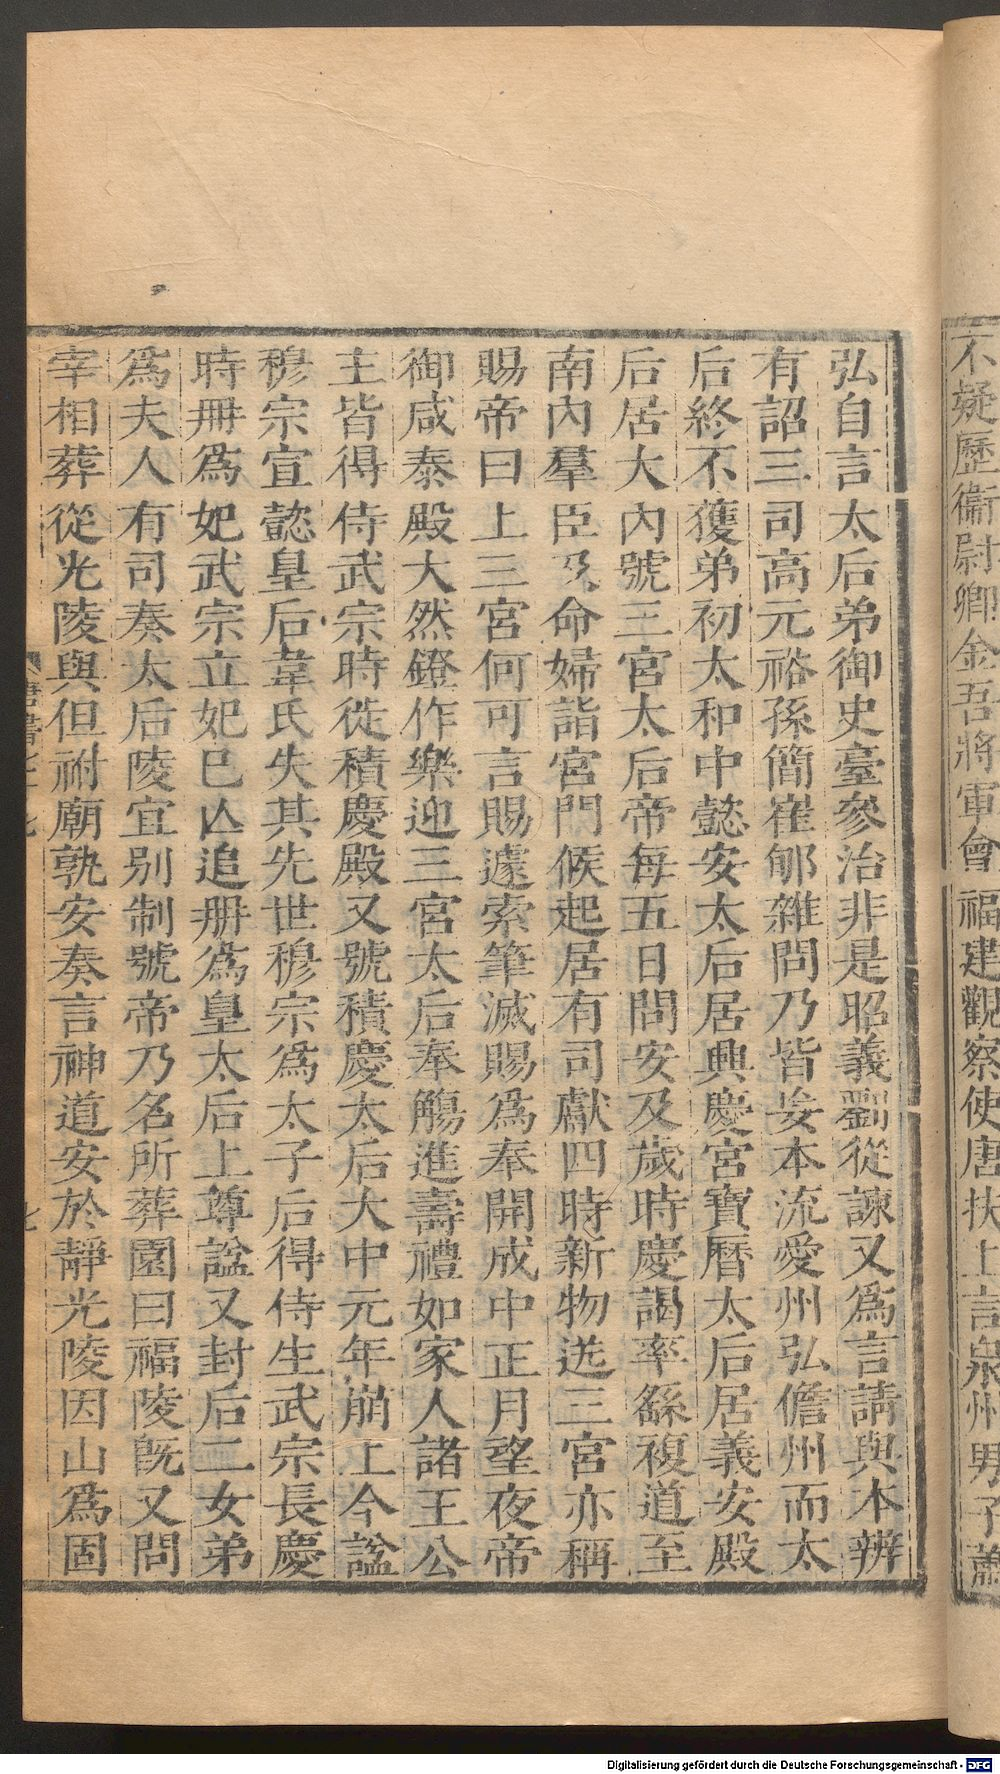 不疑歷衞尉卿金吾將軍會福建觀察使唐扶上言泉州男子蕭
弘自言太后弟御史臺參治非是昭義劉從諫又爲言請與本辨
有詔三司高元裕孫簡崔郇雜問乃皆妄本流愛州弘儋州而太
后終不獲弟初太和中懿安太后居興慶宮寶曆太后居義安殿
后居大內號三宮太后帝每五日問安及歲時慶謁率繇複道至
南內羣臣及命婦詣宮門候起居有司獻四時新物送三宮亦稱
賜帝曰上三宮何可言賜遽索筆滅賜爲奉開成中正月望夜帝
御咸泰殿大然鐙作樂迎三宮太后奉觴進壽禮如家人諸王公
主皆得侍武宗時徙積慶殿又號積慶太后大中元年崩上今諡
穆宗宣懿皇后韋氏失其先世穆宗爲太子后得侍生武宗長慶
時冊爲妃武宗立妃已亾追冊爲皇太后上尊諡又封后二女弟
爲夫人有司奏太后陵宜別制號帝乃名所葬園曰福陵旣又問
宰相葬從光陵與但祔廟孰安奏言神道安於靜光陵因山爲固
唐書七十七
七
Digitalisierung gefördert durch die Deutsche Forschungsgemeinschaft - DFG